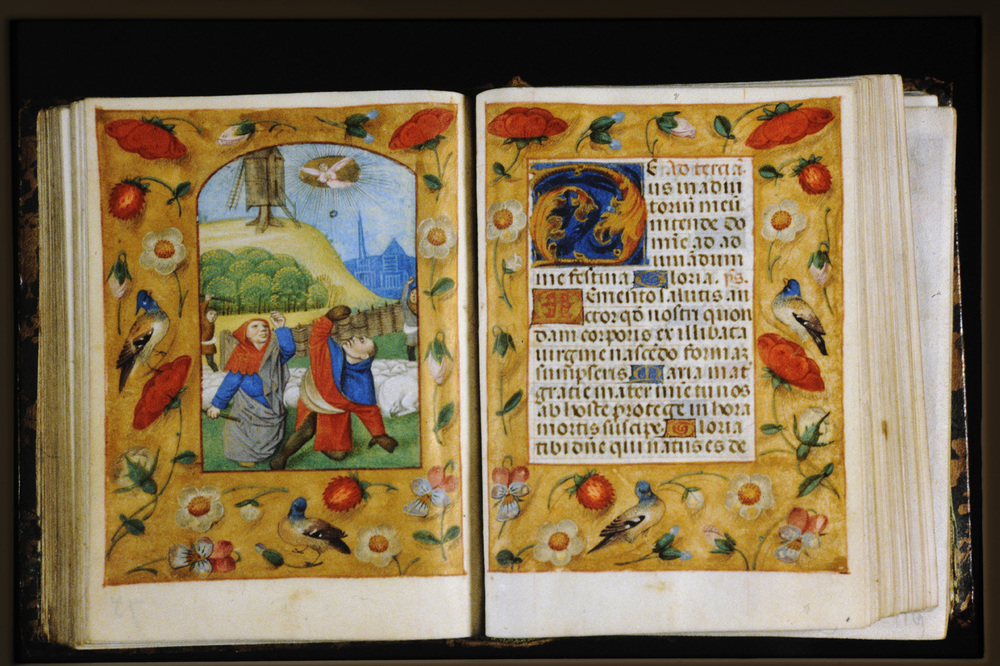 Deus in adiu
toriū meū
intende do
mīe ad ad
iuuādum
me festina Gloria. ps.
Memento salutis au
ctor qd̄ nostri quon
dam corporis ex illibata
virgine nascēdo formaz
sumpseris Maria mat
gratie mater mīe tu nos
ab hoste protege in hora
mortis suscipe Gloria
tibi dn̄e qui natus es de